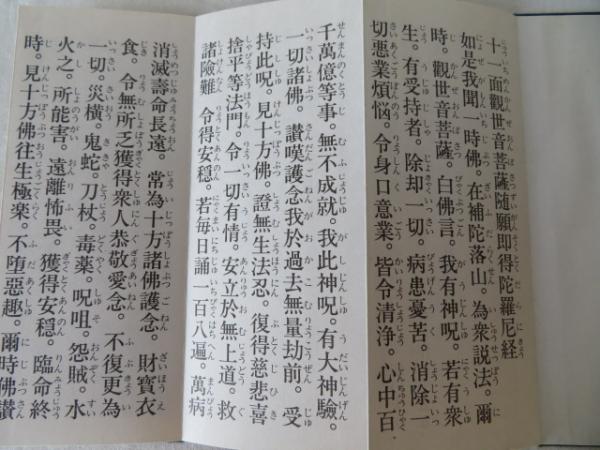 十一面觀世音菩薩随願即得陀羅尼経
如是我聞一時佛。在補陀落山。為衆説法。爾
時。觀世音菩薩。白佛言。我有神呪。若有衆
生。有受持者。除却一切。病患憂苦。消除一
切悪業煩悩。令身口意業。皆令清浄。心中百
千萬億等事。無不成就。我此神呪。有大神驗。
一切諸佛。讃嘆護念我於過去無量劫前。受
持此呪。見十方佛。證無生法忍。復得慈悲喜
捨平等法門。令一切有情。安立於無上道。救
諸險難。令得安穏。若毎日誦一百八遍。萬病
消滅壽命長遠。常為十方諸佛護念。財寳衣
食。令無所乏獲得衆人恭敬愛念。不復更為
一切。災橫。鬼蛇。刀杖。毒薬。呪咀。怨賊。水
火之。所能害。遠離怖畏。獲得安穏。臨命終
時。見十方佛往生極楽。不堕惡趣。爾時佛讃